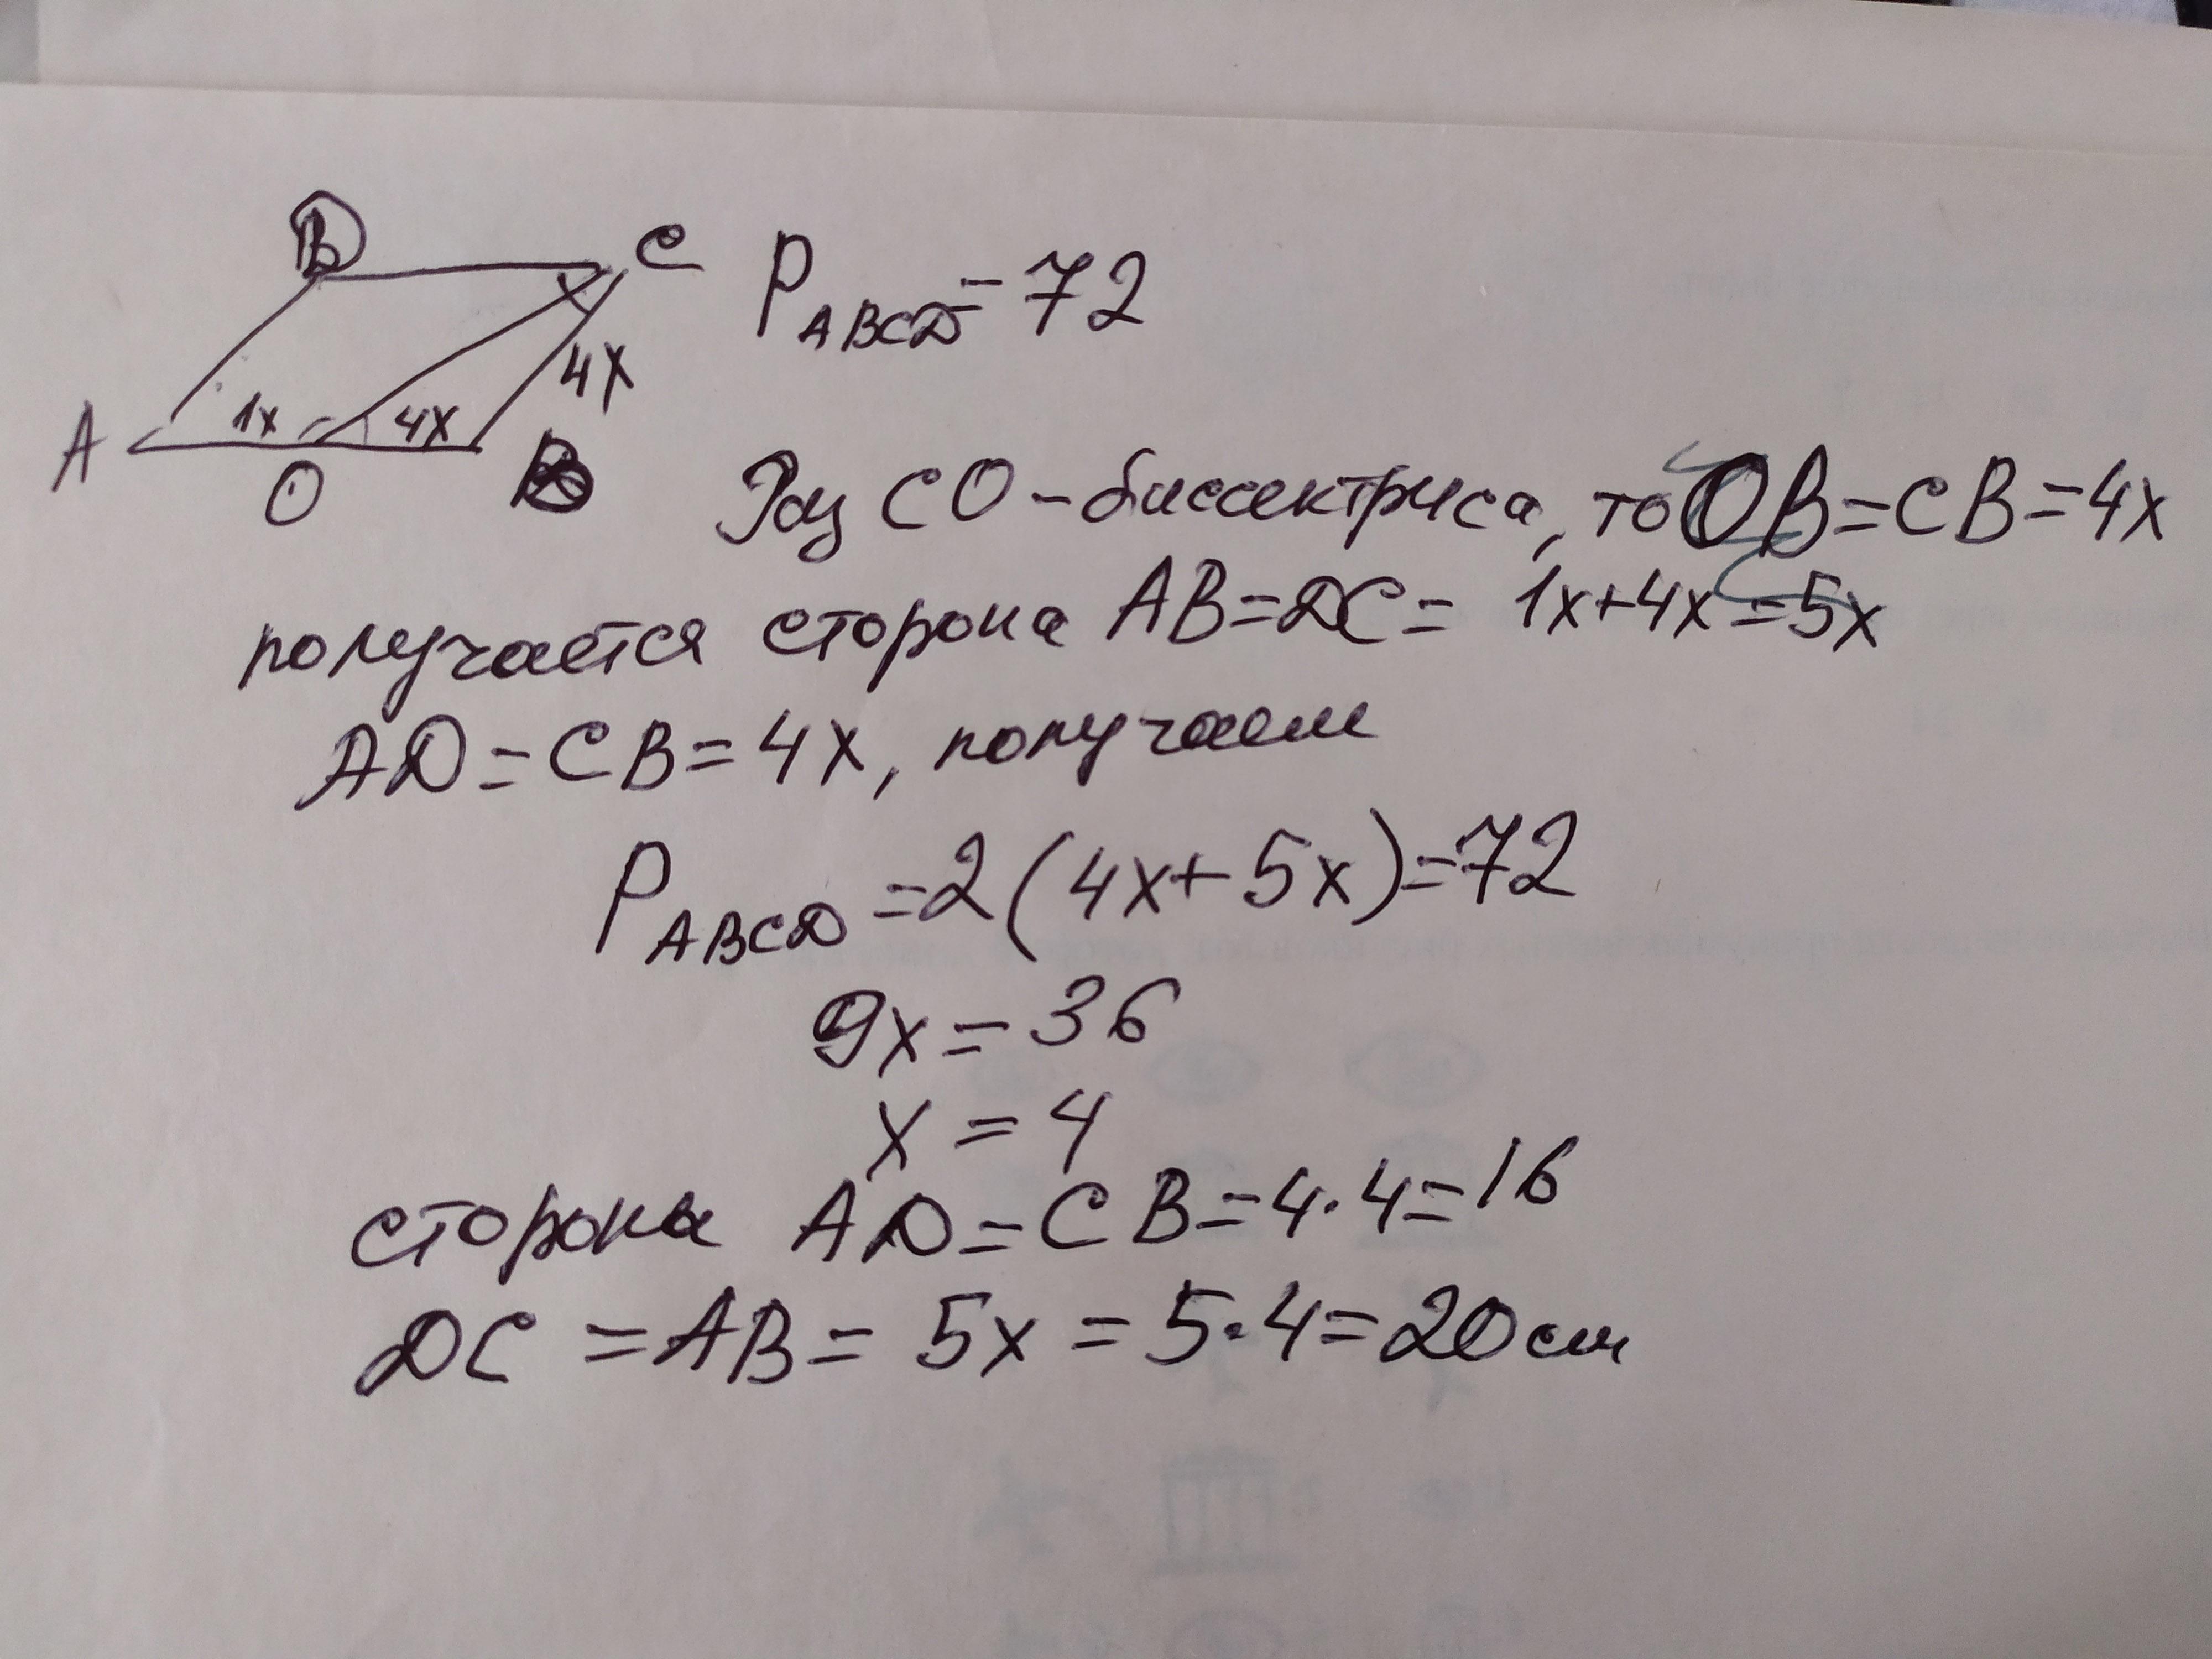 D C P ABCD = 72
4x
A 1x 4x B
O
Раз CO - биссектриса, то OB = CB = 4x
получается сторона AB = DC = 1x + 4x = 5x
AD = CB = 4x, получаем
P ABCD = 2 (4x + 5x) = 72
9x = 36
x = 4
стороны AD = CB = 4 · 4 = 16
DC = AB = 5x = 5 · 4 = 20 см